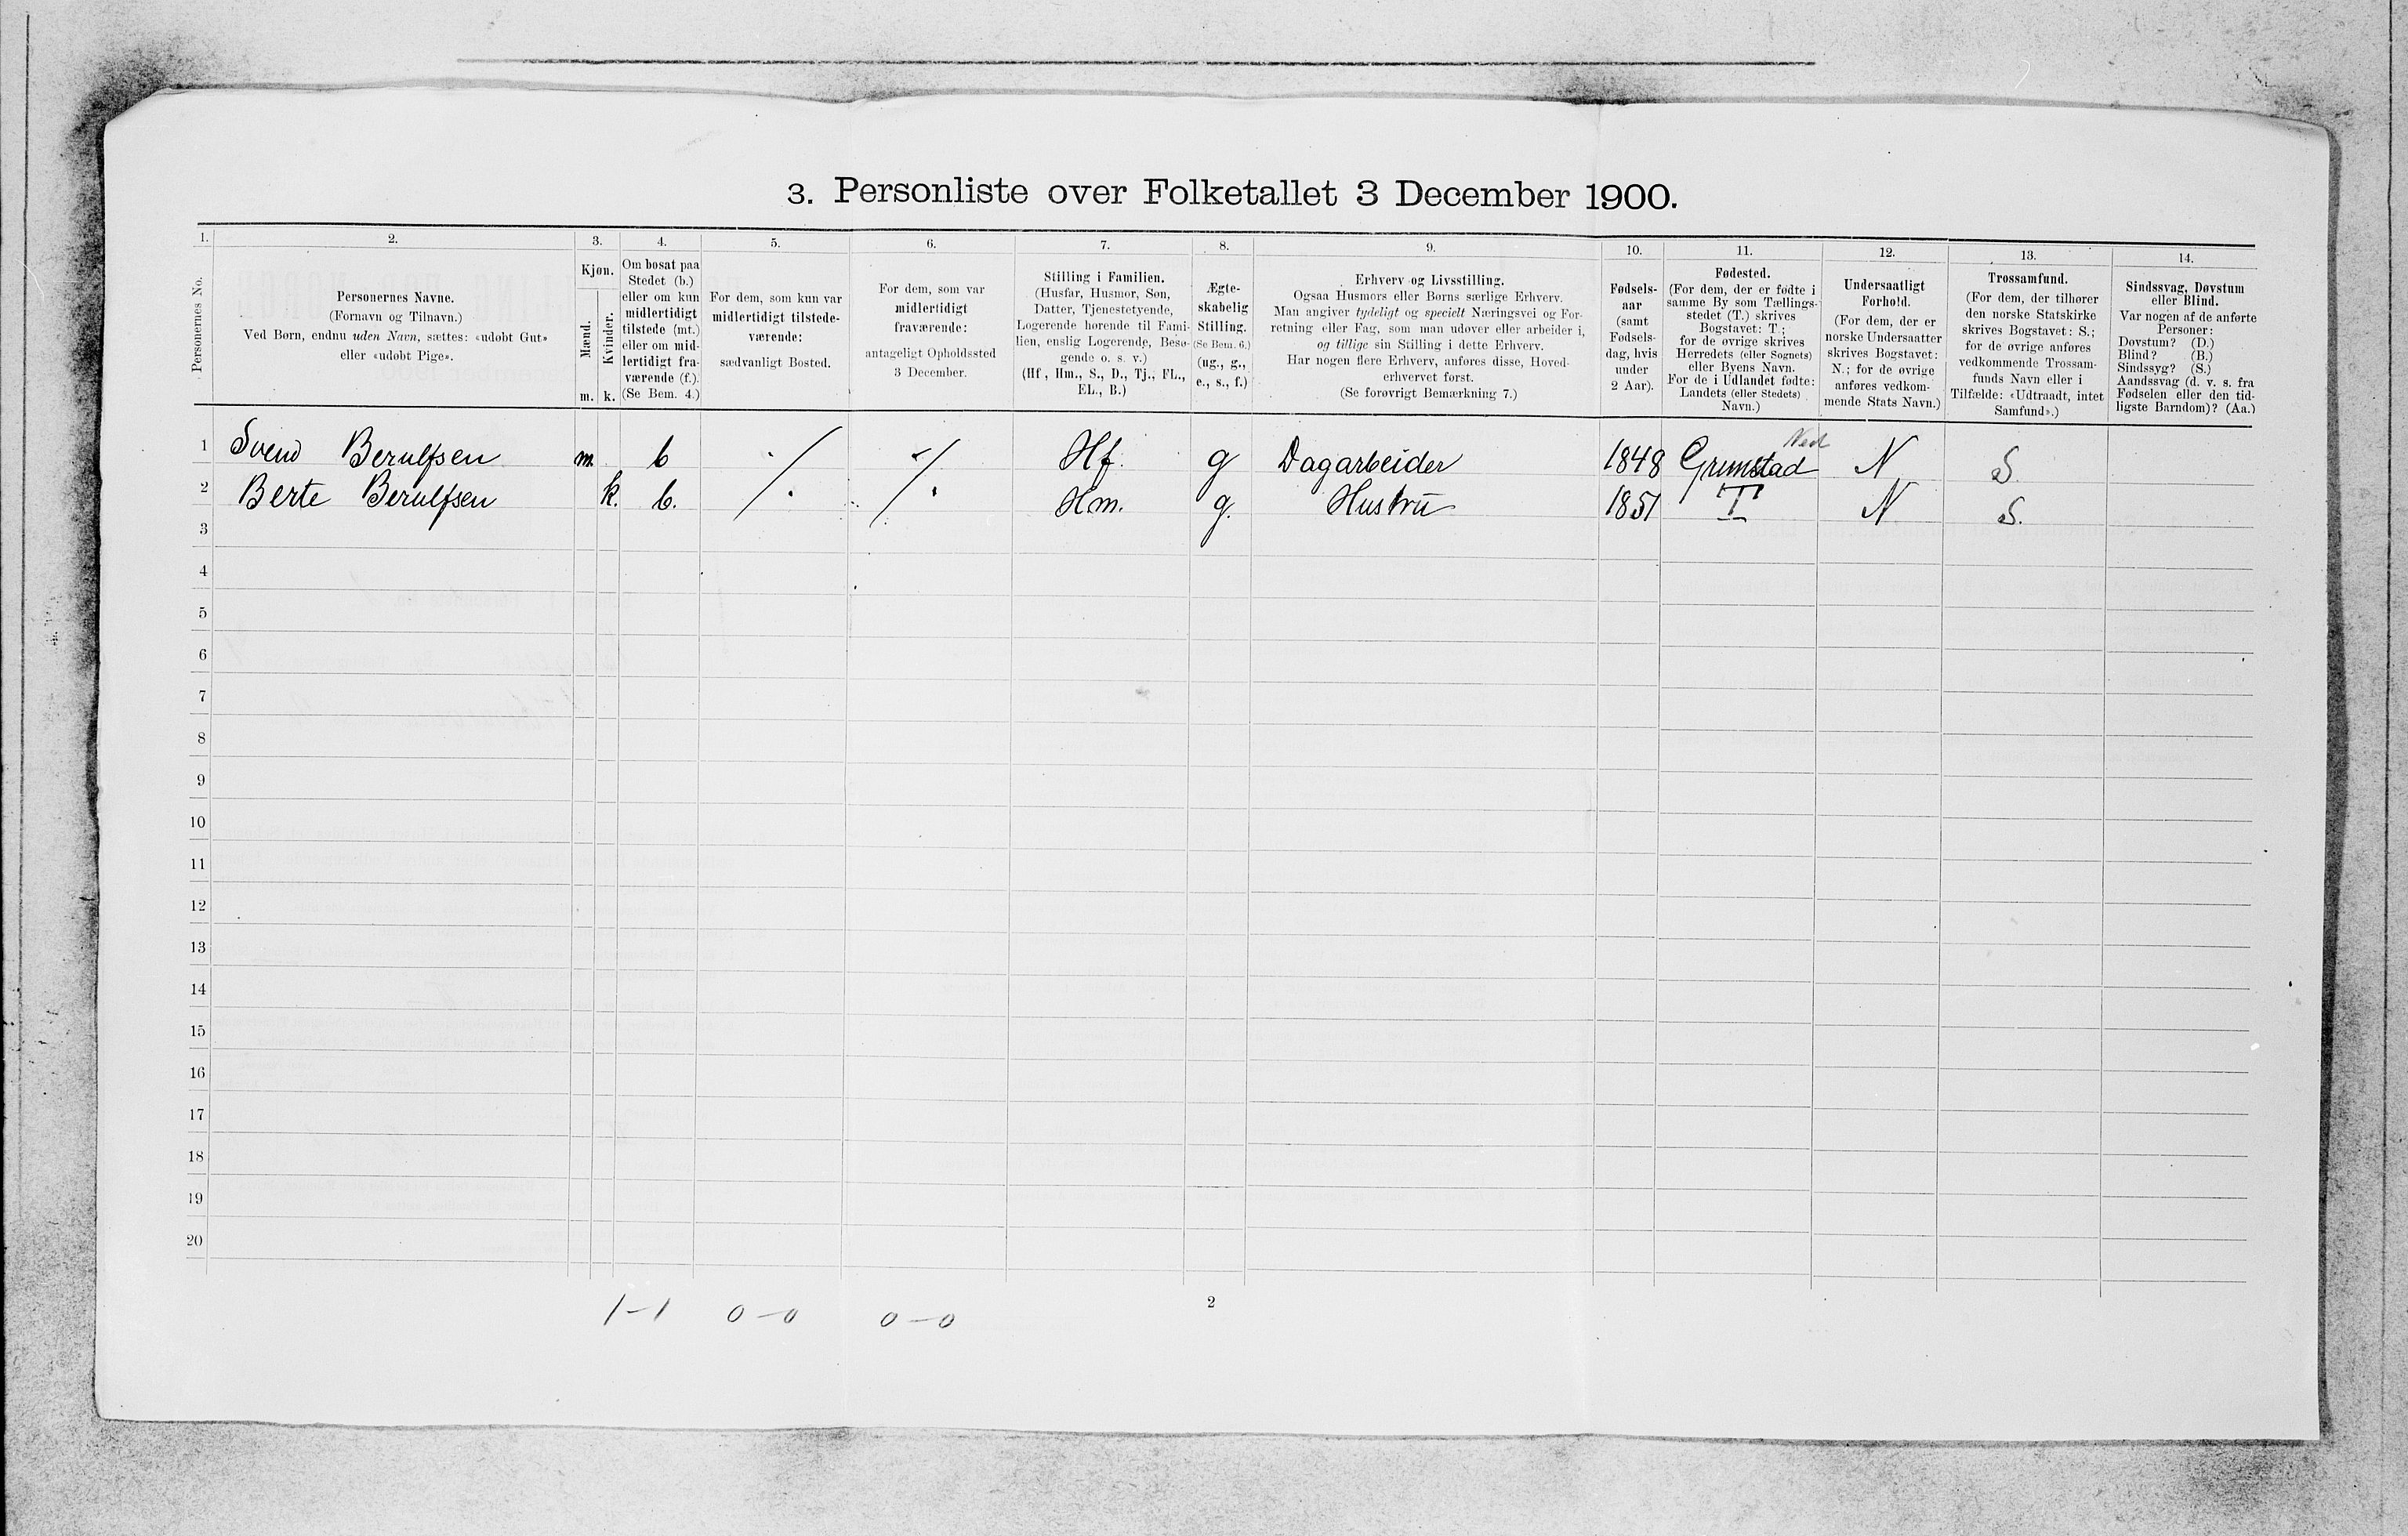 3. Personliste over Folketallet 3 December 1900.
1. 2. 3. 4. 5. 6. 7. 8. 9. 10. 11. 12. 13. 14.
Personernes No.
Personernes Navne.
(Fornavn og Tilnavn.)
Ved Børn, endnu uden Navn, sættes: «udøbt Gut»
eller «udøbt Pige».
Kjøn.
Mænd.
Kvinder.
m. k.
Om bosat paa
Stedet (b.)
eller om kun
midlertidigt
tilstede (mt.)
eller om mid-
lertidigt fra-
værende (f.).
(Se Bem. 4.)
For dem, som kun var
midlertidigt tilstede-
værende:
sædvanligt Bosted.
For dem, som var
midlertidigt
fraværende:
antageligt Opholdssted
3 December.
Stilling i Familien.
(Husfar, Husmor, Søn,
Datter, Tjenestetyende,
Logerende hørende til Fami-
lien, enslig Logerende, Besø-
gende o. s. v.)
(Hf., Hm., S., D., Tj., FL.,
EL., B.)
Ægte-
skabelig
Stilling.
(Se Bem. 6.)
(ug., g.,
e., s., f.)
Erhverv og Livsstilling.
Ogsaa Husmors eller Børns særlige Erhverv.
Man angiver tydeligt og specielt Næringsvei og For-
retning eller Fag, som man udøver eller arbeider i,
og tillige sin Stilling i dette Erhverv.
Har nogen flere Erhverv, anføres disse, Hoved-
erhvervet først.
(Se forøvrigt Bemærkning 7.)
Fødsels-
aar
(samt
Fødsels-
dag, hvis
under
2 Aar).
Fødested.
(For dem, der er fødte i
samme By som Tællings-
stedet (T.) skrives
Bogstavet: T.;
for de øvrige skrives
Herredets (eller Sognets)
eller Byens Navn.
For de i Udlandet fødte:
Landets (eller Stedets)
Navn.)
Undersaatligt
Forhold.
(For dem, der er
norske Undersaatter
skrives Bogstavet:
N.; for de øvrige
anføres vedkom-
mende Stats Navn.)
Trossamfund.
(For dem, der tilhører
den norske Statskirke
skrives Bogstavet: S.;
for de øvrige anføres
vedkommende Trossam-
funds Navn eller i
Tilfælde: «Udtraadt, intet
Samfund».)
Sindssvag, Døvstum
eller Blind.
Var nogen af de anførte
Personer:
Døvstum? (D.)
Blind? (B.)
Sindssyg? (S.)
Aandssvag (d. v. s. fra
Fødselen eller den tid-
ligste Barndom)? (Aa.)
1 Svend Berulfsen m b ./ ./. Hf. g Dagarbeider 1848 Grimstad N S.
2 Berte Berulfsen k. b. Hm. g. Hustru 1851 T N S.
3
4
5
6
7
8
9
10
11
12
13
14
15
16
17
18
19
20
1-1 0-0 0-0
2